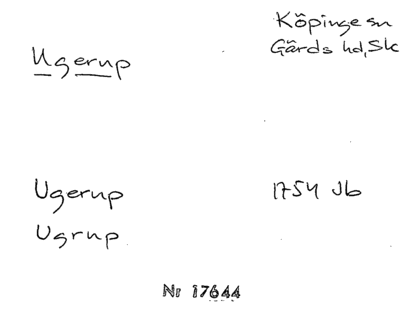 Köpinge sn
Ugerup Gärds hd, Sk
Ugerup 1754 Jb
Ugrup
Nr 17644